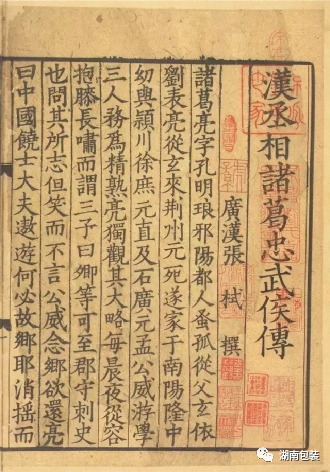 漢丞相諸葛忠武侯傳
廣漢張 栻 撰
諸葛亮字孔明琅邪陽都人蚤孤從父玄依
劉表亮從玄來荆州玄死遂家于南陽隆中
幼與潁川徐庶元直及石廣元孟公威游學
三人務爲精熟亮獨觀其大略每晨夜從容
抱膝長嘯而謂三子曰卿等可至郡守刺史
也問其所志但笑而不言公威念鄉欲還亮
曰中國饒士大夫遨遊何必故鄉耶消摇而
湖南包装